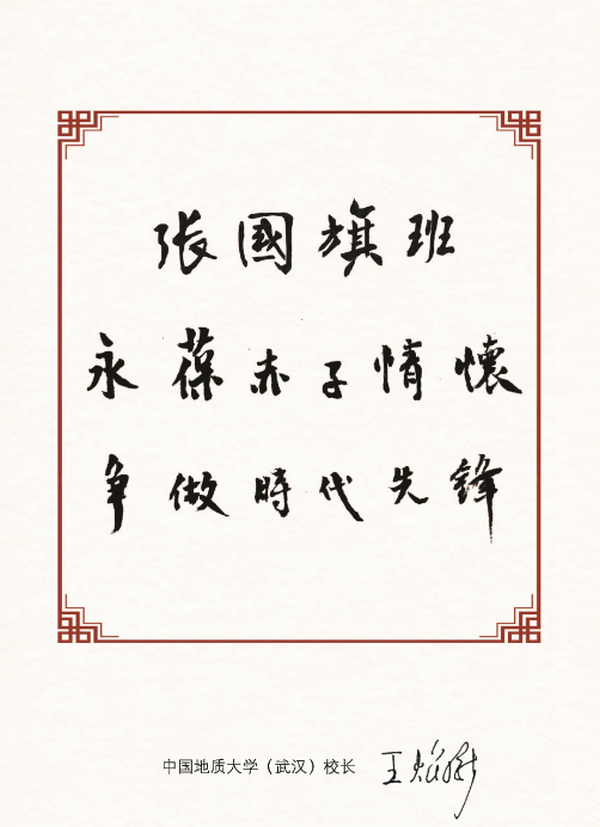 張國旗班
永葆赤子情懷
争做時代先鋒
中国地质大学（武汉）校长 王焰新